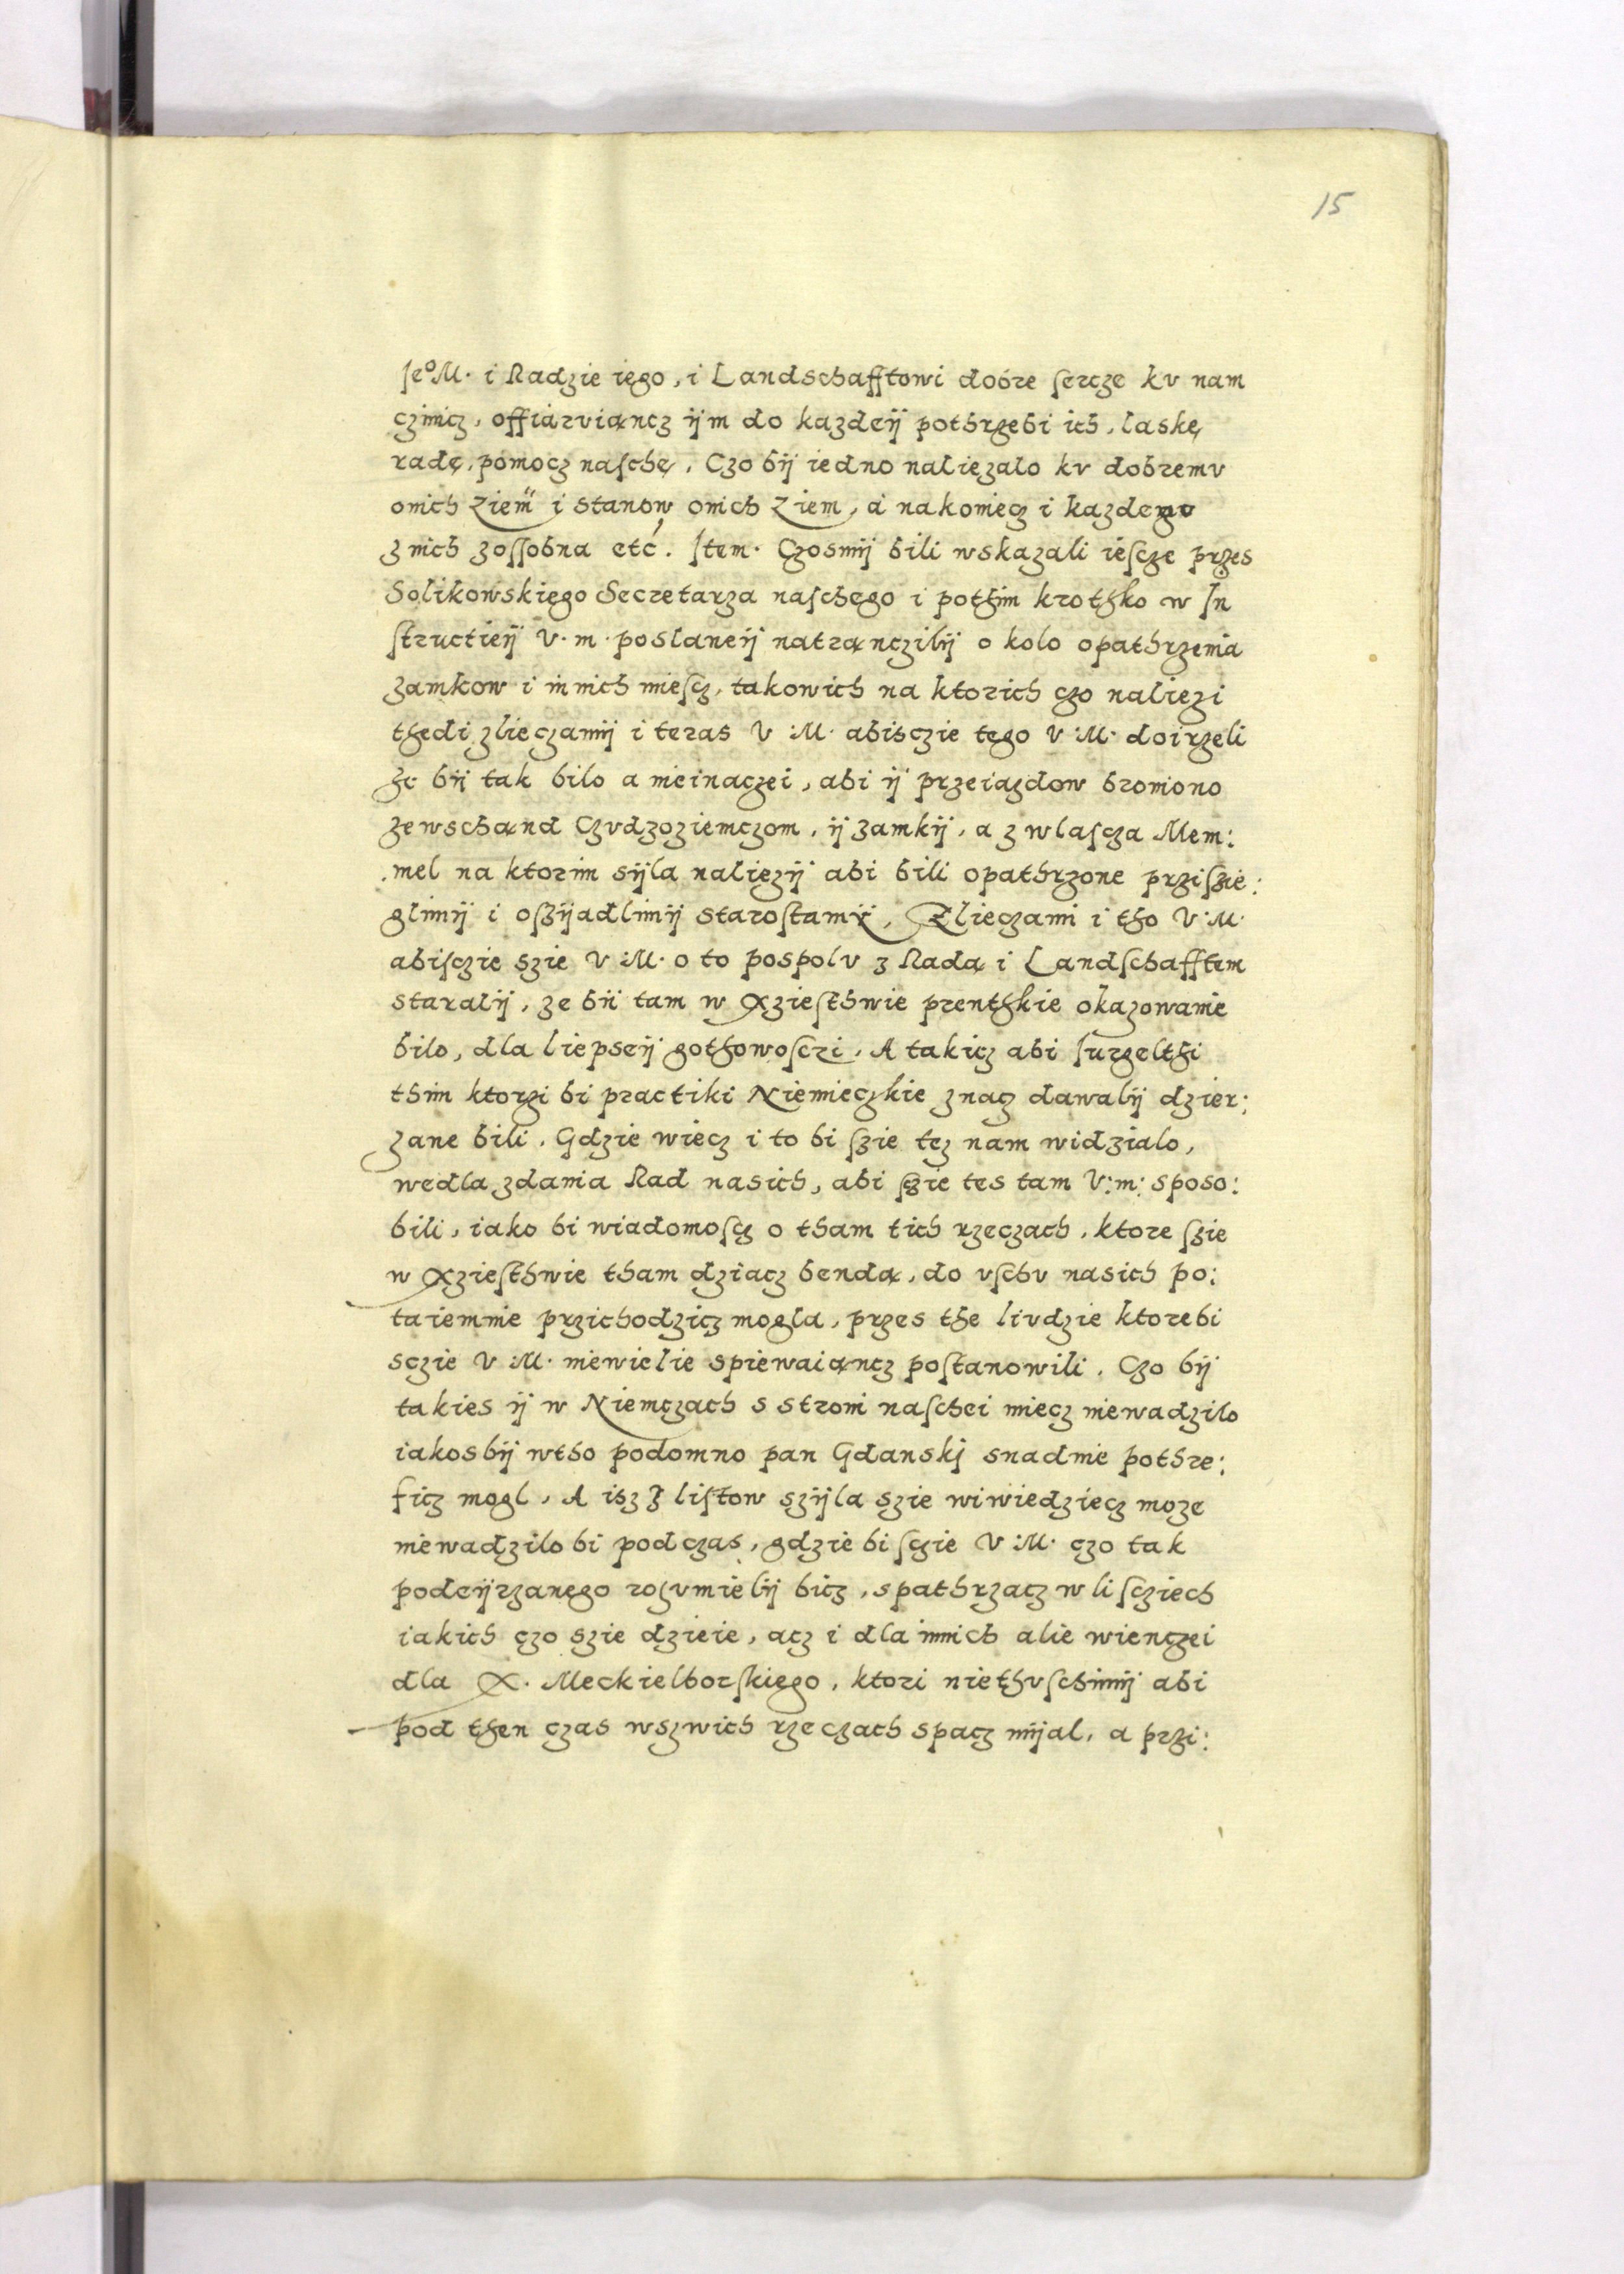 15
Jeº M. i Radzie iego, i Landschafftowi dobre sercze kv nam
czinicz, offiarviącz ijm do kazdeij pothrzebi ich, laskę,
radę, pomocz naschę, Czo bij iedno naliezalo kv dobremv
onich Ziem i stanow onich Ziem, a nakoniecz i kazdemv
z nich zossobna etc. Item. Czosmij bili wskazali iescze przes
Solikowskiego Secretarza naschego i pothim krothko w In
structieij V. m. poslaneij natrąnczilij o kolo opathrzenia
zamkow i innich miescz, takowich na ktorich czo naliezi
thedi zlieczamij i teras V. M. abisczie tego V. M. doirzeli
że bij tak bilo a nieinaczei, abi ij przeiazdow broniono
zewschąnd Czvdzoziemczom, ij zamkij, a zwlascza Mem:
mel na ktorim sijla naliezij abi bili opathrzone przisie:
glimij i osijadlimij starostamij, Zlieczami i tho V. M.
abisczie szie V. M. o to pospolv z Radą i Landschafftem
staralij, ze bij tam w Xziesthwie prenthkie okazowanie
bilo, dla liepseij gothowosczi. A takicz abi Jurgelthi
thim ktorzi bi practiki Niemieczkie znacz dawalij dzier:
zane bili. Gdzie wiecz i to bi szie tez nam widzialo,
wedla zdania Rad nasich, abi szie tes tam V: m: sposo:
bili, iako bi wiadomoscz o tham tich rzeczach, ktore szie
w Xziesthwie tham dziacz bendą, do vschv nasich po:
taiemnie przichodzicz mogla, przes the livdzie ktorebi
sczie V. M. niewielie spiewaiąncz postanowili. Czo bij
takies ij w Niemczach s stroni naschei miecz niewadzilo
iakosbij wtho podomno pan Gdanskj snadnie pothre:
ficz mogl, A isz z listow szijla szie wiwiedziecz moze
niewadzilo bi podczas, gdzie bi sczie V. M. czo tak
podeijrzanego rozvmielij bicz, spathrzacz w lisciech
iakich czo szie dzieie, acz i dla innich alie wienczei
dla X. Meckielborskiego, ktori niethvschimij abi
pod then czas wszwich rzeczach spacz mijal, a przi: